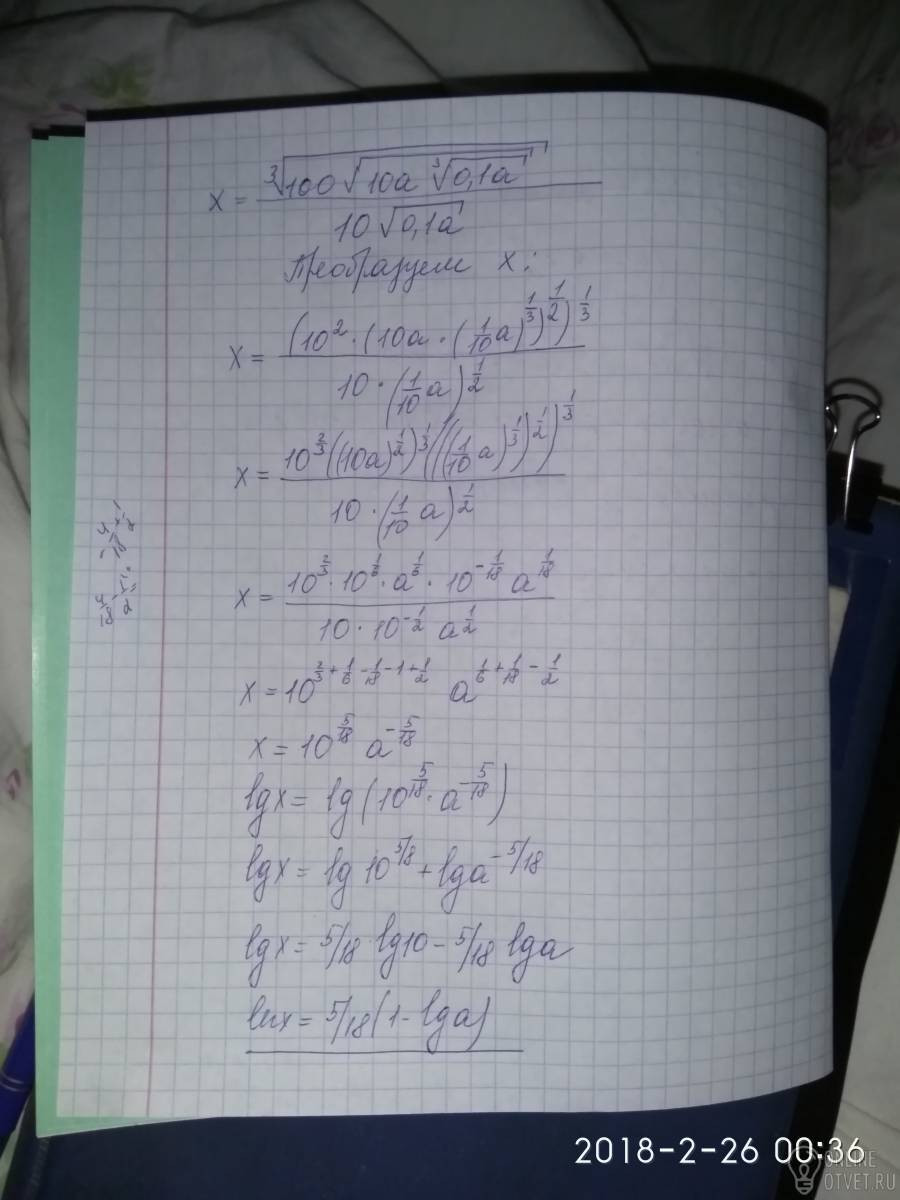 x = ∛(100√(10a ∛(0,1a))) / (10√(0,1a))
Преобразуем x:
x = (10² · (10a · (1/10 a)^(1/3))^(1/2))^(1/3) / (10 · (1/10 a)^(1/2))
x = 10^(2/3) ((10a)^(1/2))^(1/3) (((1/10 a)^(1/3))^(1/2))^(1/3) / (10 · (1/10 a)^(1/2))
x = 10^(2/3) · 10^(1/6) · a^(1/6) · 10^(-1/18) a^(1/18) / (10 · 10^(-1/2) a^(1/2))
x = 10^(2/3 + 1/6 - 1/18 - 1 + 1/2) a^(1/6 + 1/18 - 1/2)
x = 10^(5/18) a^(-5/18)
lgx = lg(10^(5/18) · a^(-5/18))
lgx = lg 10^(5/18) + lga^(-5/18)
lgx = 5/18 lg10 - 5/18 lga
lgx = 5/18 (1 - lga)
2018-2-26 00:36
ONLINE
OTVET.RU